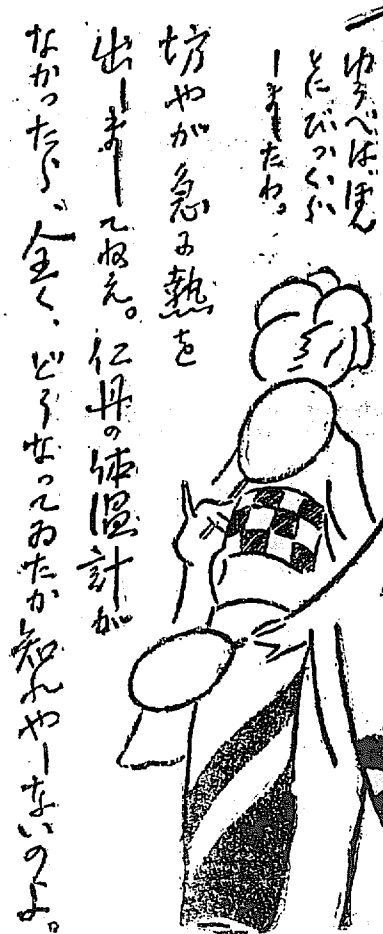 ゆうべはほん
とにびつくり
しましたわ。
坊やが急に熱を
出しましてねえ。仁丹の体温計が
なかつたら、全く、どうなつてゐたか知れやしないのよ。